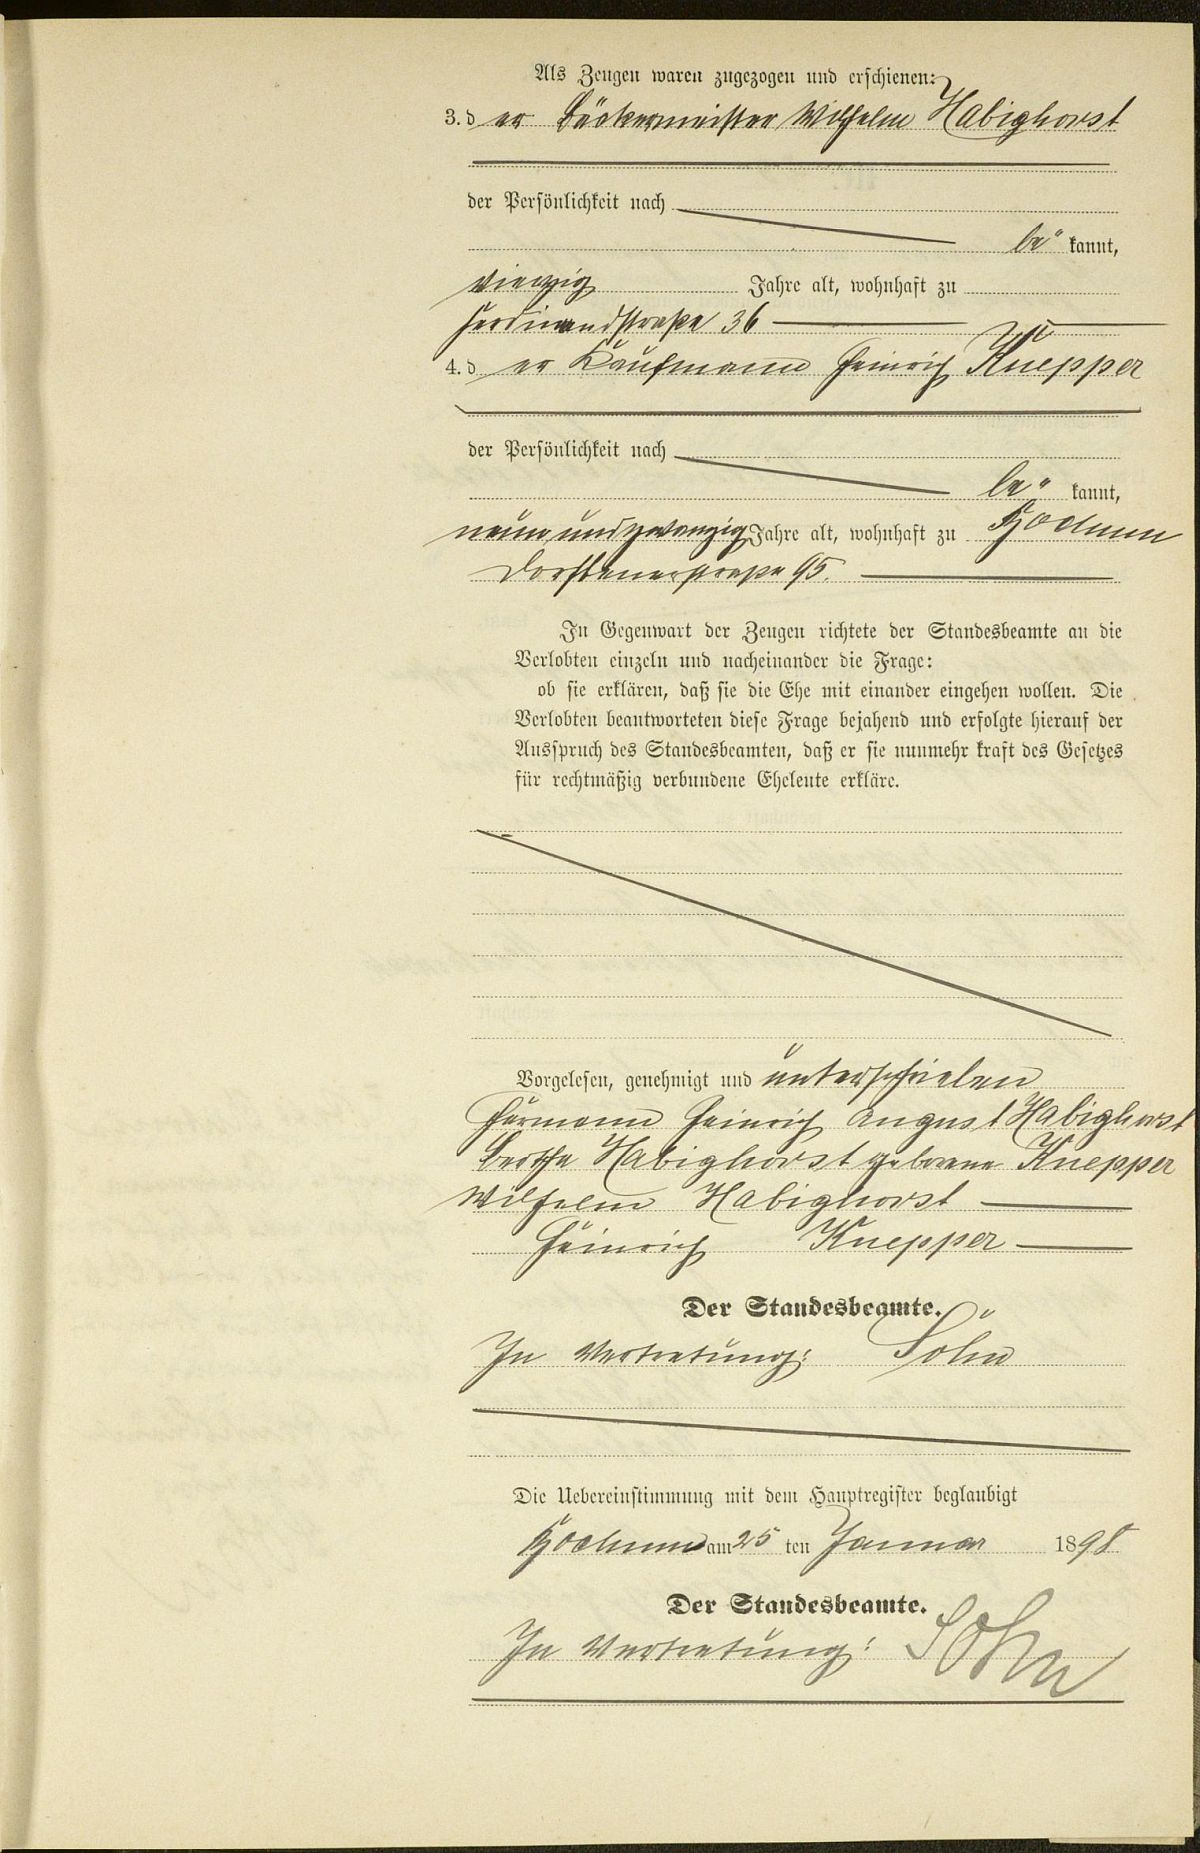 Als Zeugen waren zugezogen und erschienen:
3. der Bäckermeister Wilhelm Habighorst
der Persönlichkeit nach
be kannt,
vierzig Jahre alt, wohnhaft zu
Ferdinandstraße 36
4. der Kaufmann Heinrich Knepper
der Persönlichkeit nach
be kannt,
neunundzwanzig Jahre alt, wohnhaft zu Bochum
Dorstenerstraße 95.
In Gegenwart der Zeugen richtete der Standesbeamte an die
Verlobten einzeln und nacheinander die Frage:
ob sie erklären, daß sie die Ehe mit einander eingehen wollen. Die
Verlobten beantworteten diese Frage bejahend und erfolgte hierauf der
Ausspruch des Standesbeamten, daß er sie nunmehr kraft des Gesetzes
für rechtmäßig verbundene Eheleute erkläre.
Vorgelesen, genehmigt und unterschrieben
Hermann Heinrich August Habighorst
Bertha Habighorst geborene Knepper
Wilhelm Habighorst
Heinrich Knepper
Der Standesbeamte.
In Vertretung:
Die Uebereinstimmung mit dem Hauptregister beglaubigt
Bochum am 25 ten Januar 1898
Der Standesbeamte.
In Vertretung: